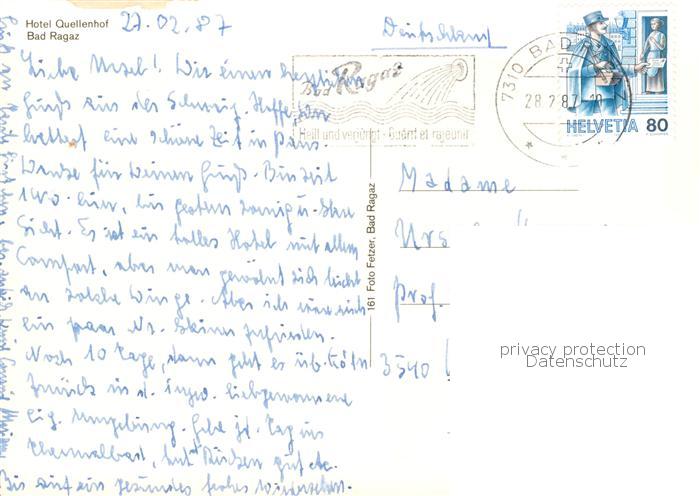 Hotel Quellenhof
Bad Ragaz
27.02.87
Deutschland
Bad Ragaz
Heilt und verjüngt - Guérit et rajeunit
7310 BAD
28.2.87
HELVETIA 80
Liebe Ursel! Wir einen herzlichen
Gruß aus der Schweiz. Hoffe, Du
hattest eine schöne Zeit in Paris
Danke für Deinen Gruß. Bin seit
hier, bis gestern sonnig u.
Sicht. Es ist ein tolles Hotel mit allem
Comfort, aber man gewöhnt sich leicht
an solche Dinge. Aber ich wäre mit
ein paar kleiner zufrieden.
Noch 10 Tage, dann geht es üb. Köln
zurück in d. liebgewonnene
Umgebung. Gehe jd. Tag ins
Thermalbad, tut Rücken gut etc.
Bis auf ein gesundes frohes Wiedersehen.
161 Foto Fetzer, Bad Ragaz
Madame
Urs
Prof.
3540
privacy protection
Datenschutz